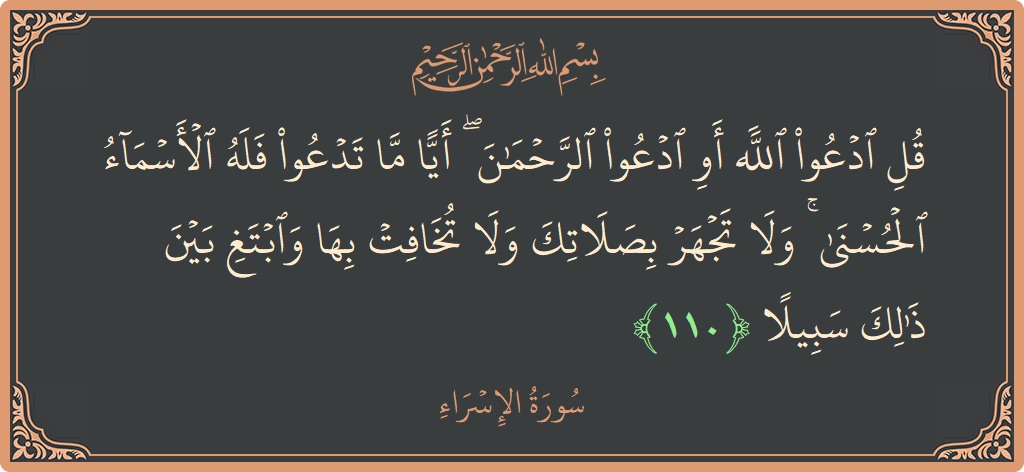 بِسْمِ اللهِ الرَّحْمٰنِ الرَّحِيْمِ
قُلِ ٱدۡعُواْ ٱللَّهَ أَوِ ٱدۡعُواْ ٱلرَّحۡمَٰنَۖ أَيّٗا مَّا تَدۡعُواْ فَلَهُ ٱلۡأَسۡمَآءُ
ٱلۡحُسۡنَىٰۚ وَلَا تَجۡهَرۡ بِصَلَاتِكَ وَلَا تُخَافِتۡ بِهَا وَٱبۡتَغِ بَيۡنَ
ذَٰلِكَ سَبِيلٗا ﴿١١٠﴾
سُورَةُ الإِسۡرَاءِ